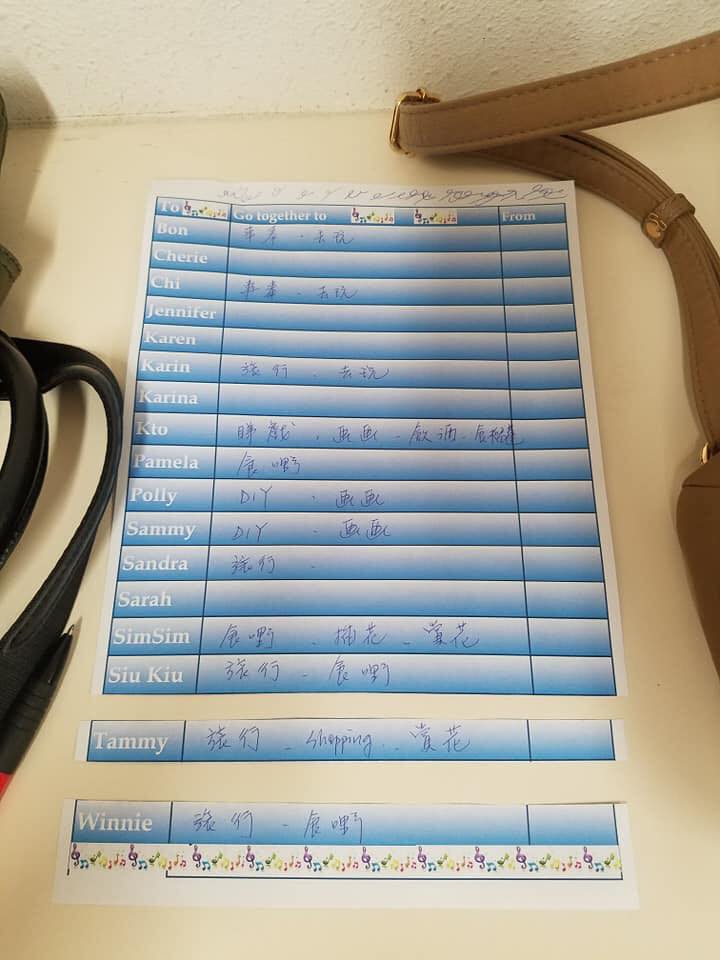 To Go together to From
Bon 去玩
Cherie
Chi 去玩
Jennifer
Karen
Karin 旅行 . 去玩
Karina
Kto 睇戲 . 画画 - 飲酒 -
Pamela 食嘢
Polly DIY . 画画
Sammy DIY . 画画
Sandra 旅行 .
Sarah
SimSim 食嘢 - 插花 - 賞花
Siu Kiu 旅行 - 食嘢
Tammy 旅行 - shopping - 賞花
Winnie 旅行 - 食嘢